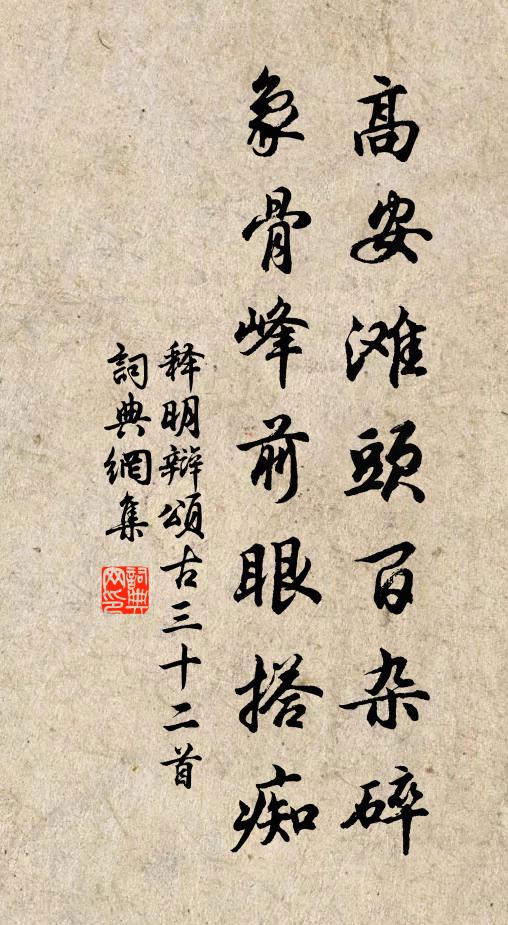 高安滩頭百杂碎
象骨峰前眼搭痴
释明辩頌古三十二首
詞典網集
詞典网印